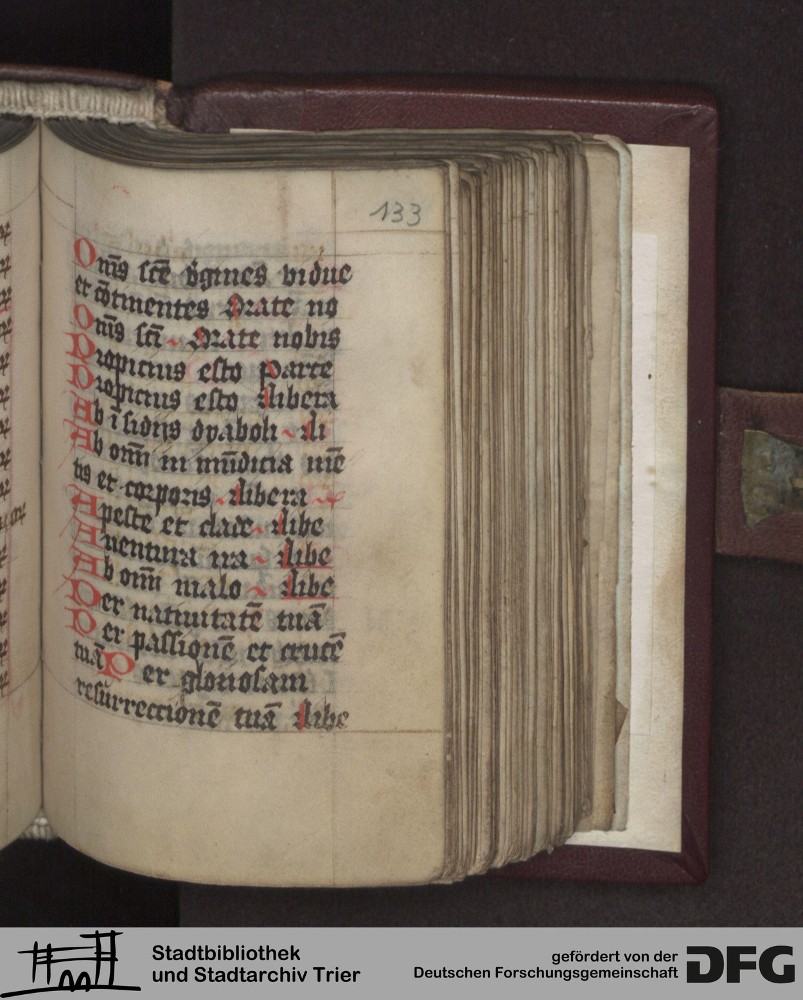 133
Om̄s sc̄e v̄gines vidue
et cōtinentes Orate no
Om̄s sc̄i Orate nobis
Propicius esto parce
Propicius esto libera
Ab īsidijs dyaboli li
Ab om̄i in mūdicia mē
tis et corporis libera
A peste et clade libe
A uentura ira libe
Ab om̄i malo libe
Per natiuitatē tuā
Per passionē et crucē
tuā Per gloriosam
resurrectionē tuā libe
Stadtbibliothek
und Stadtarchiv Trier
gefördert von der
Deutschen Forschungsgemeinschaft
DFG